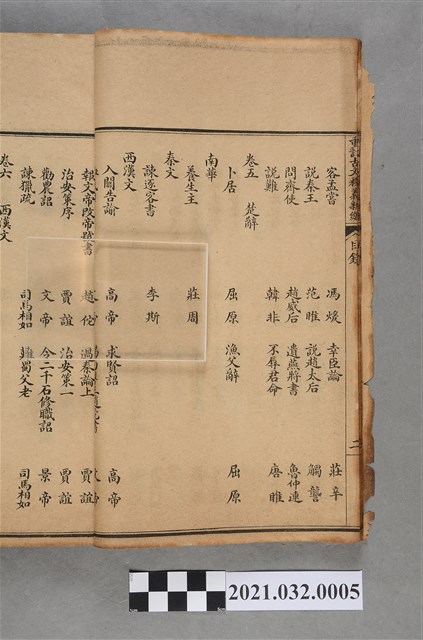 重訂古文釋義新編
目錄
二
客孟嘗 馮煖 幸臣論 莊辛
說秦王 范雎 說趙太后 觸讋
問齊使 趙威后 遺燕將書 魯仲連
說難 韓非 不辱君命 唐雎
卷五 楚辭
卜居 屈原 漁父辭 屈原
南華
養生主 莊周
秦文
諫逐客書 李斯
西漢文
入關告諭 高帝 求賢詔 高帝
報文帝改帝號書 趙佗 過秦論上 賈誼
治安策序 賈誼 治安策一 賈誼
勸農詔 文帝 令二千石修職詔 景帝
諫獵疏 司馬相如 難蜀父老 司馬相如
卷六 西漢文
2021.032.0005